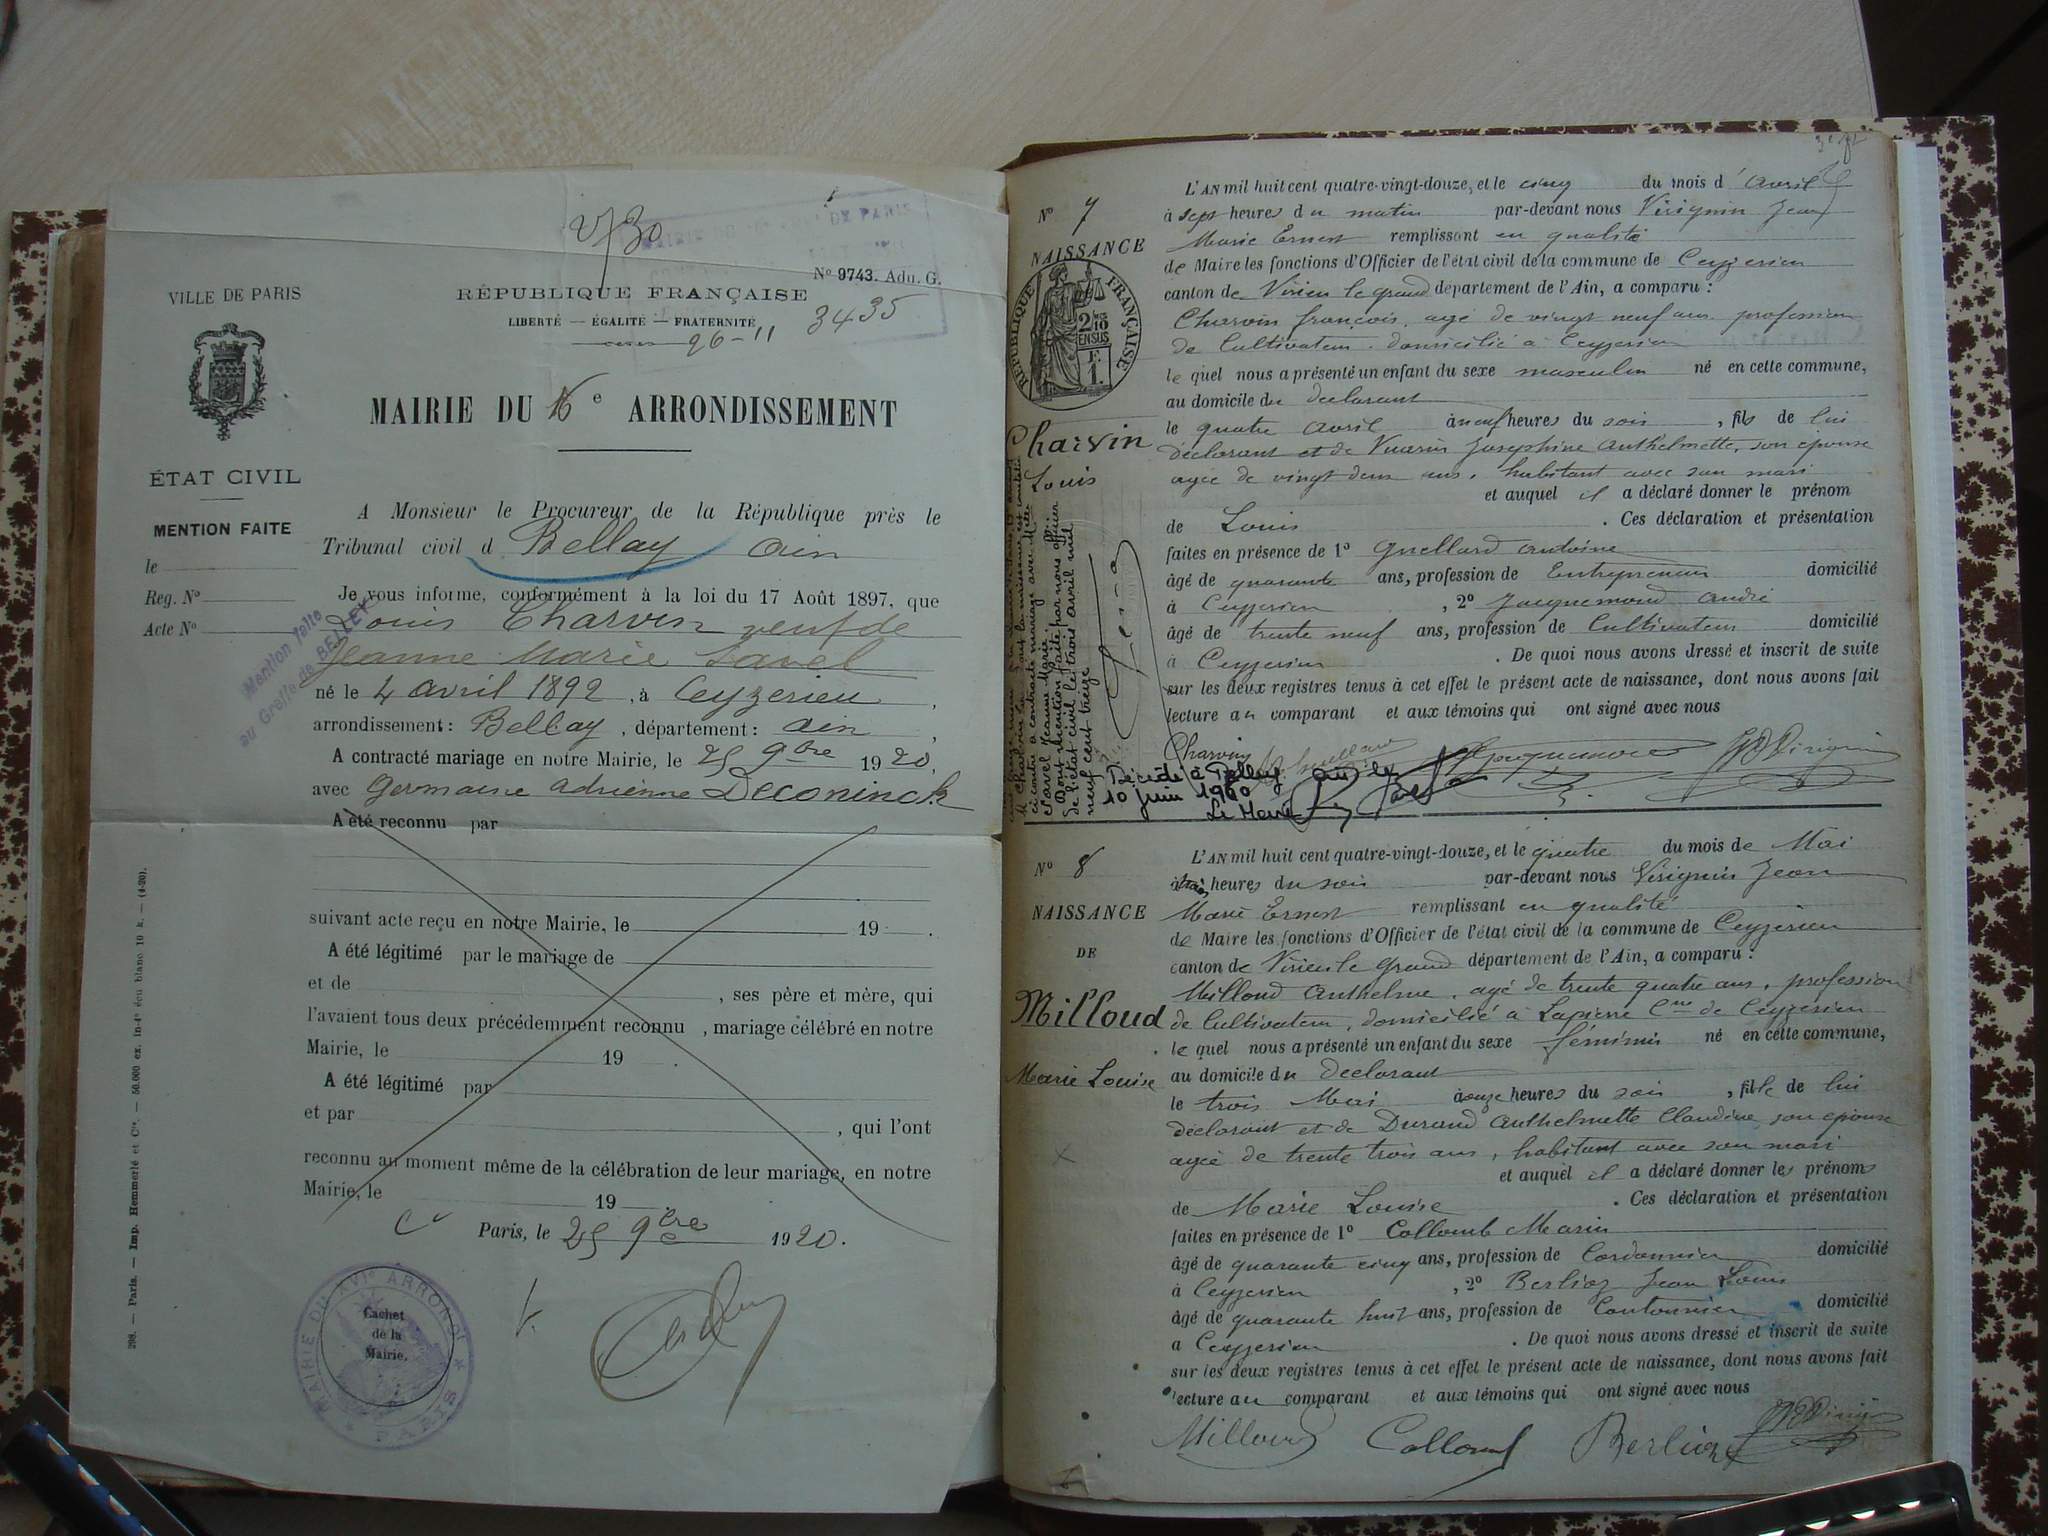 2730
N° 9743. Adu. G.
VILLE DE PARIS
RÉPUBLIQUE FRANÇAISE
LIBERTÉ — ÉGALITÉ — FRATERNITÉ
3435
26-11
MAIRIE DU 16e ARRONDISSEMENT
ÉTAT CIVIL
MENTION FAITE
le
Reg. N°
Acte N°
Mention faite
au Greffe de BELLEY
A Monsieur le Procureur de la République près le
Tribunal civil d Bellay Ain
Je vous informe, conformément à la loi du 17 Août 1897, que
Louis Charvin veuf de
Jeanne Marie Savel
né le 4 avril 1892, à Ceyzerieu,
arrondissement : Bellay, département : Ain,
A contracté mariage en notre Mairie, le 25 9bre 1920,
avec Germaine Adrienne Deconinck
A été reconnu par
suivant acte reçu en notre Mairie, le 19 .
A été légitimé par le mariage de
et de , ses père et mère, qui
l'avaient tous deux précédemment reconnu , mariage célébré en notre
Mairie, le 19 .
A été légitimé par
et par , qui l'ont
reconnu au moment même de la célébration de leur mariage, en notre
Mairie, le 19 .
Paris, le 25 9bre 1920.
MAIRIE DU XVIe ARRONDt
PARIS
Cachet
de la
Mairie.
298. — Paris. — Imp. Hemmerlé et Cie. — 50.000 ex. in-4° écu blanc 10 k. — (4-20).
N° 7
NAISSANCE
RÉPUBLIQUE FRANÇAISE
Charvin
Louis
L'AN mil huit cent quatre-vingt-douze, et le cinq du mois d' avril
à sept heures du matin par-devant nous Virignin Jean
Marie Ernest remplissant en qualité
de Maire les fonctions d'Officier de l'état civil de la commune de Ceyzerieu
canton de Virieu le grand département de l'Ain, a comparu :
Charvin françois, agé de vingt neuf ans profession
de Cultivateur, domicilié à Ceyzerieu
le quel nous a présenté un enfant du sexe masculin né en cette commune,
au domicile du declarant
le quatre avril à neuf heures du soir , fils de lui
déclarant et de Vuarin Josephine Anthelmette, son épouse
agée de vingt deux ans, habitant avec son mari
et auquel il a déclaré donner le prénom
de Louis . Ces déclaration et présentation
faites en présence de 1° Guellard antoine
âgé de quarante ans, profession de Entrepreneur domicilié
à Ceyzerieu , 2° Jacquemond andré
âgé de trente neuf ans, profession de Cultivateur domicilié
à Ceyzerieu . De quoi nous avons dressé et inscrit de suite
sur les deux registres tenus à cet effet le présent acte de naissance, dont nous avons fait
lecture au comparant et aux témoins qui ont signé avec nous
Charvin
ci contre a contracté mariage avec Mlle
Savel Jeanne Marie.
Dont mention faite par nous officier
de l'état civil le trois avril mil
neuf cent treize
Décédé à Belley
10 juin 1960
Le Maire
N° 8
NAISSANCE
DE
Milloud
Marie Louise
L'AN mil huit cent quatre-vingt-douze, et le quatre du mois de Mai
à trois heures du soir par-devant nous Virignin Jean
Marie Ernest remplissant en qualité
de Maire les fonctions d'Officier de l'état civil de la commune de Ceyzerieu
canton de Virieu le Grand département de l'Ain, a comparu :
Milloud Anthelme, agé de trente quatre ans, profession
de Cultivateur, domicilié à Lapierre Cne de Ceyzerieu
le quel nous a présenté un enfant du sexe féminin né en cette commune,
au domicile du declarant
le trois Mai à onze heures du soir , fille de lui
déclarant et de Durand Anthelmette Claudine, son épouse
agée de trente trois ans, habitant avec son mari
et auquel il a déclaré donner les prénoms
de Marie Louise . Ces déclaration et présentation
faites en présence de 1° Collomb Marin
âgé de quarante cinq ans, profession de Cordonnier domicilié
à Ceyzerieu , 2° Berlioz Jean Louis
âgé de quarante huit ans, profession de Cantonnier domicilié
à Ceyzerieu . De quoi nous avons dressé et inscrit de suite
sur les deux registres tenus à cet effet le présent acte de naissance, dont nous avons fait
lecture au comparant et aux témoins qui ont signé avec nous
Milloud Collomb Berlioz